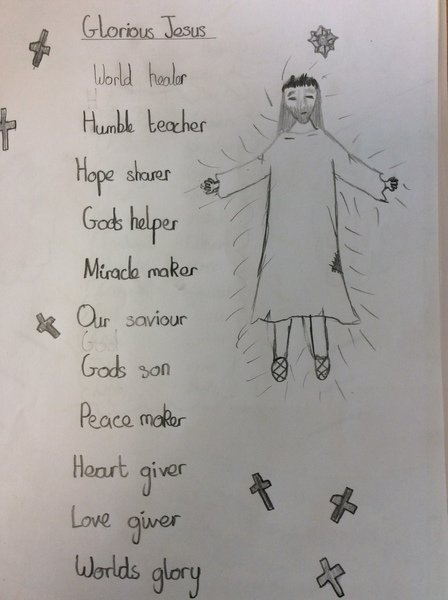 Glorious Jesus
World healer
Humble teacher
Hope sharer
Gods helper
Miracle maker
Our saviour
Gods son
Peace maker
Heart giver
Love giver
Worlds glory